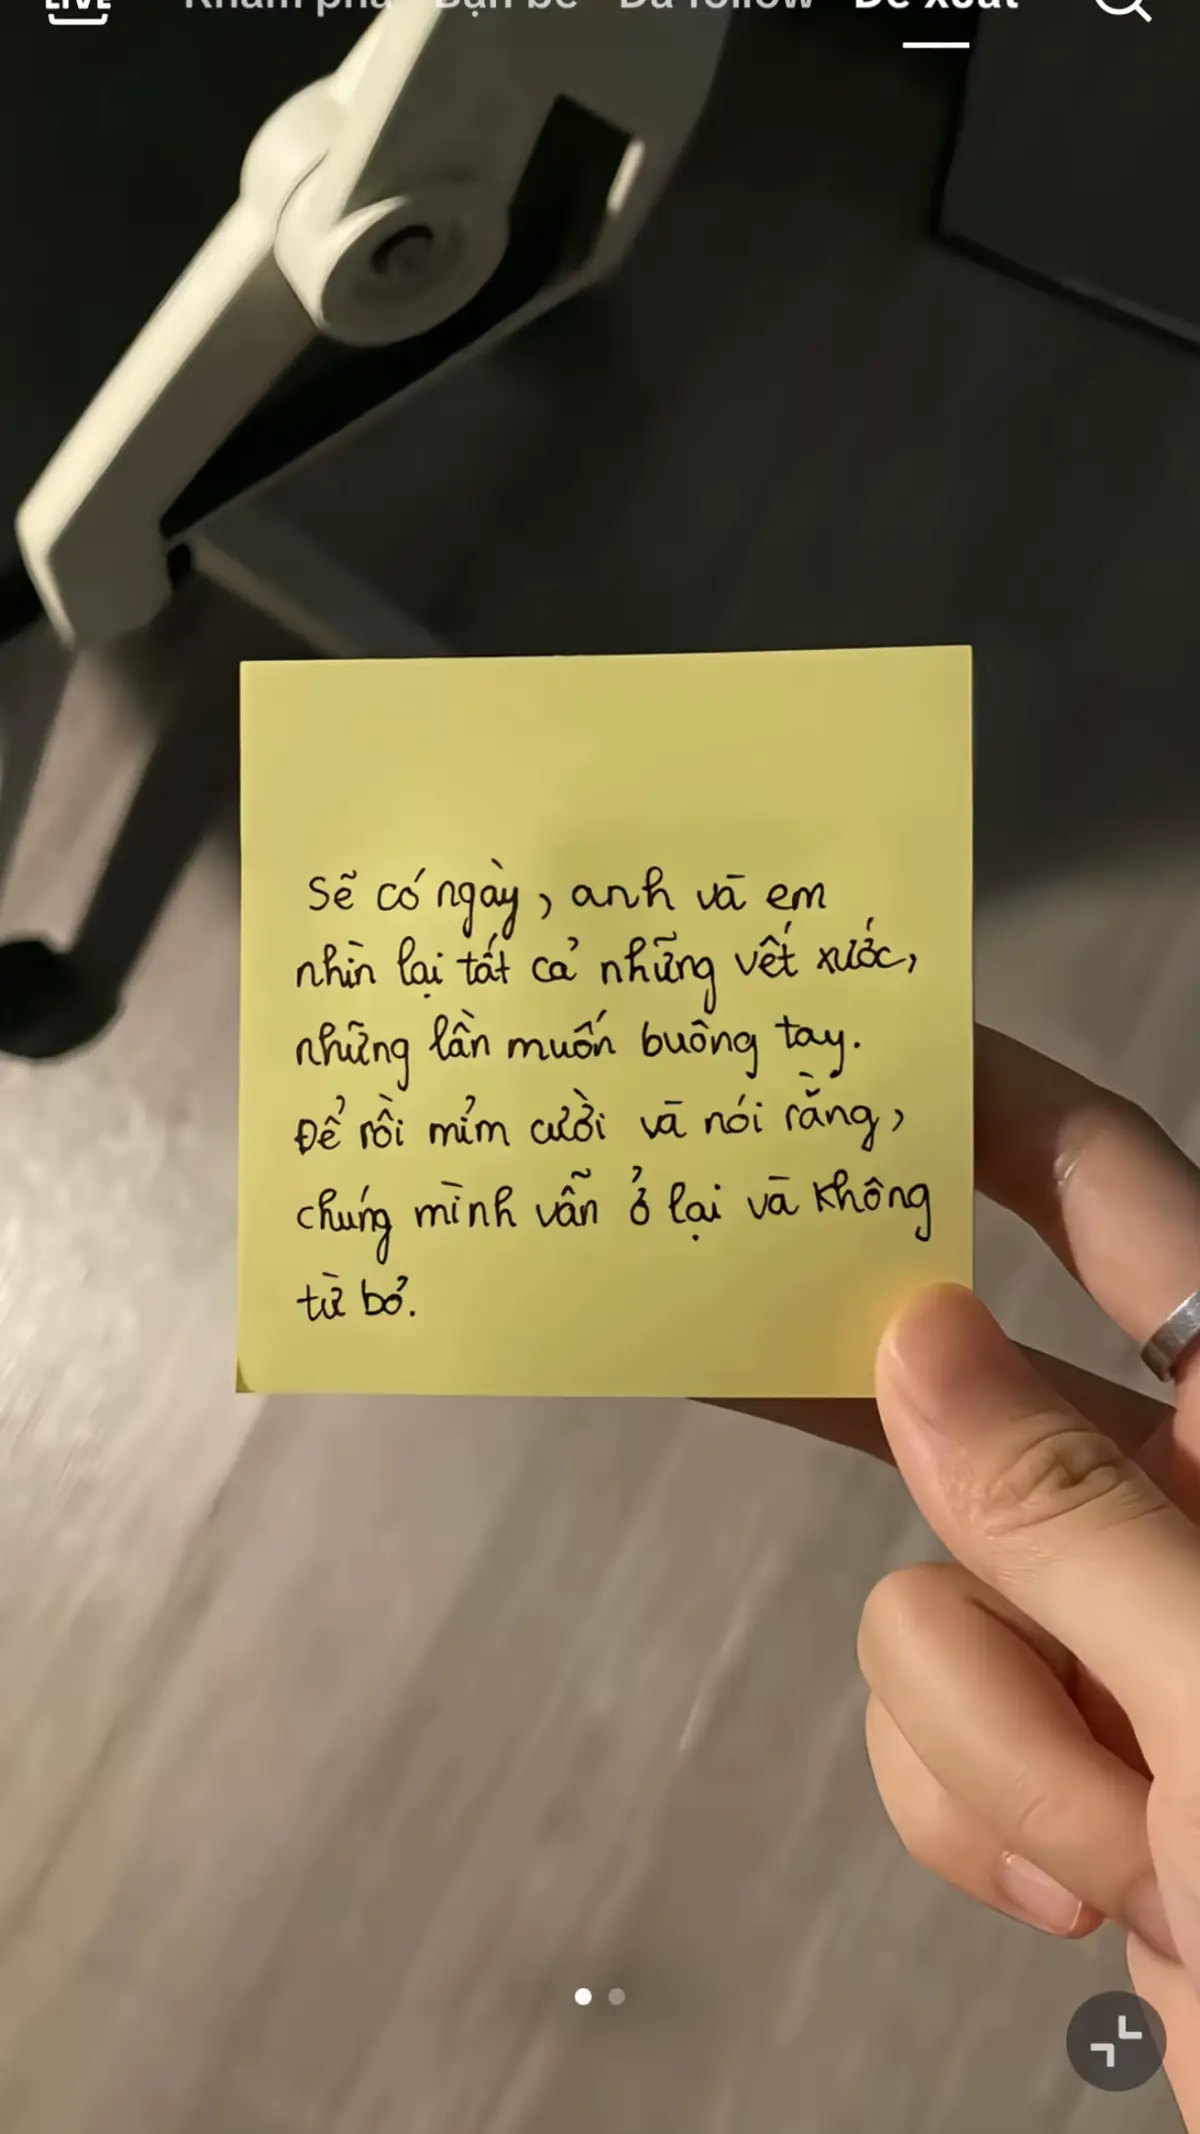 LIVE Khám phá Bạn bè Đã follow Đề xuất
Sẽ có ngày, anh và em
nhìn lại tất cả những vết xước,
những lần muốn buông tay.
Để rồi mỉm cười và nói rằng,
chúng mình vẫn ở lại và không
từ bỏ.